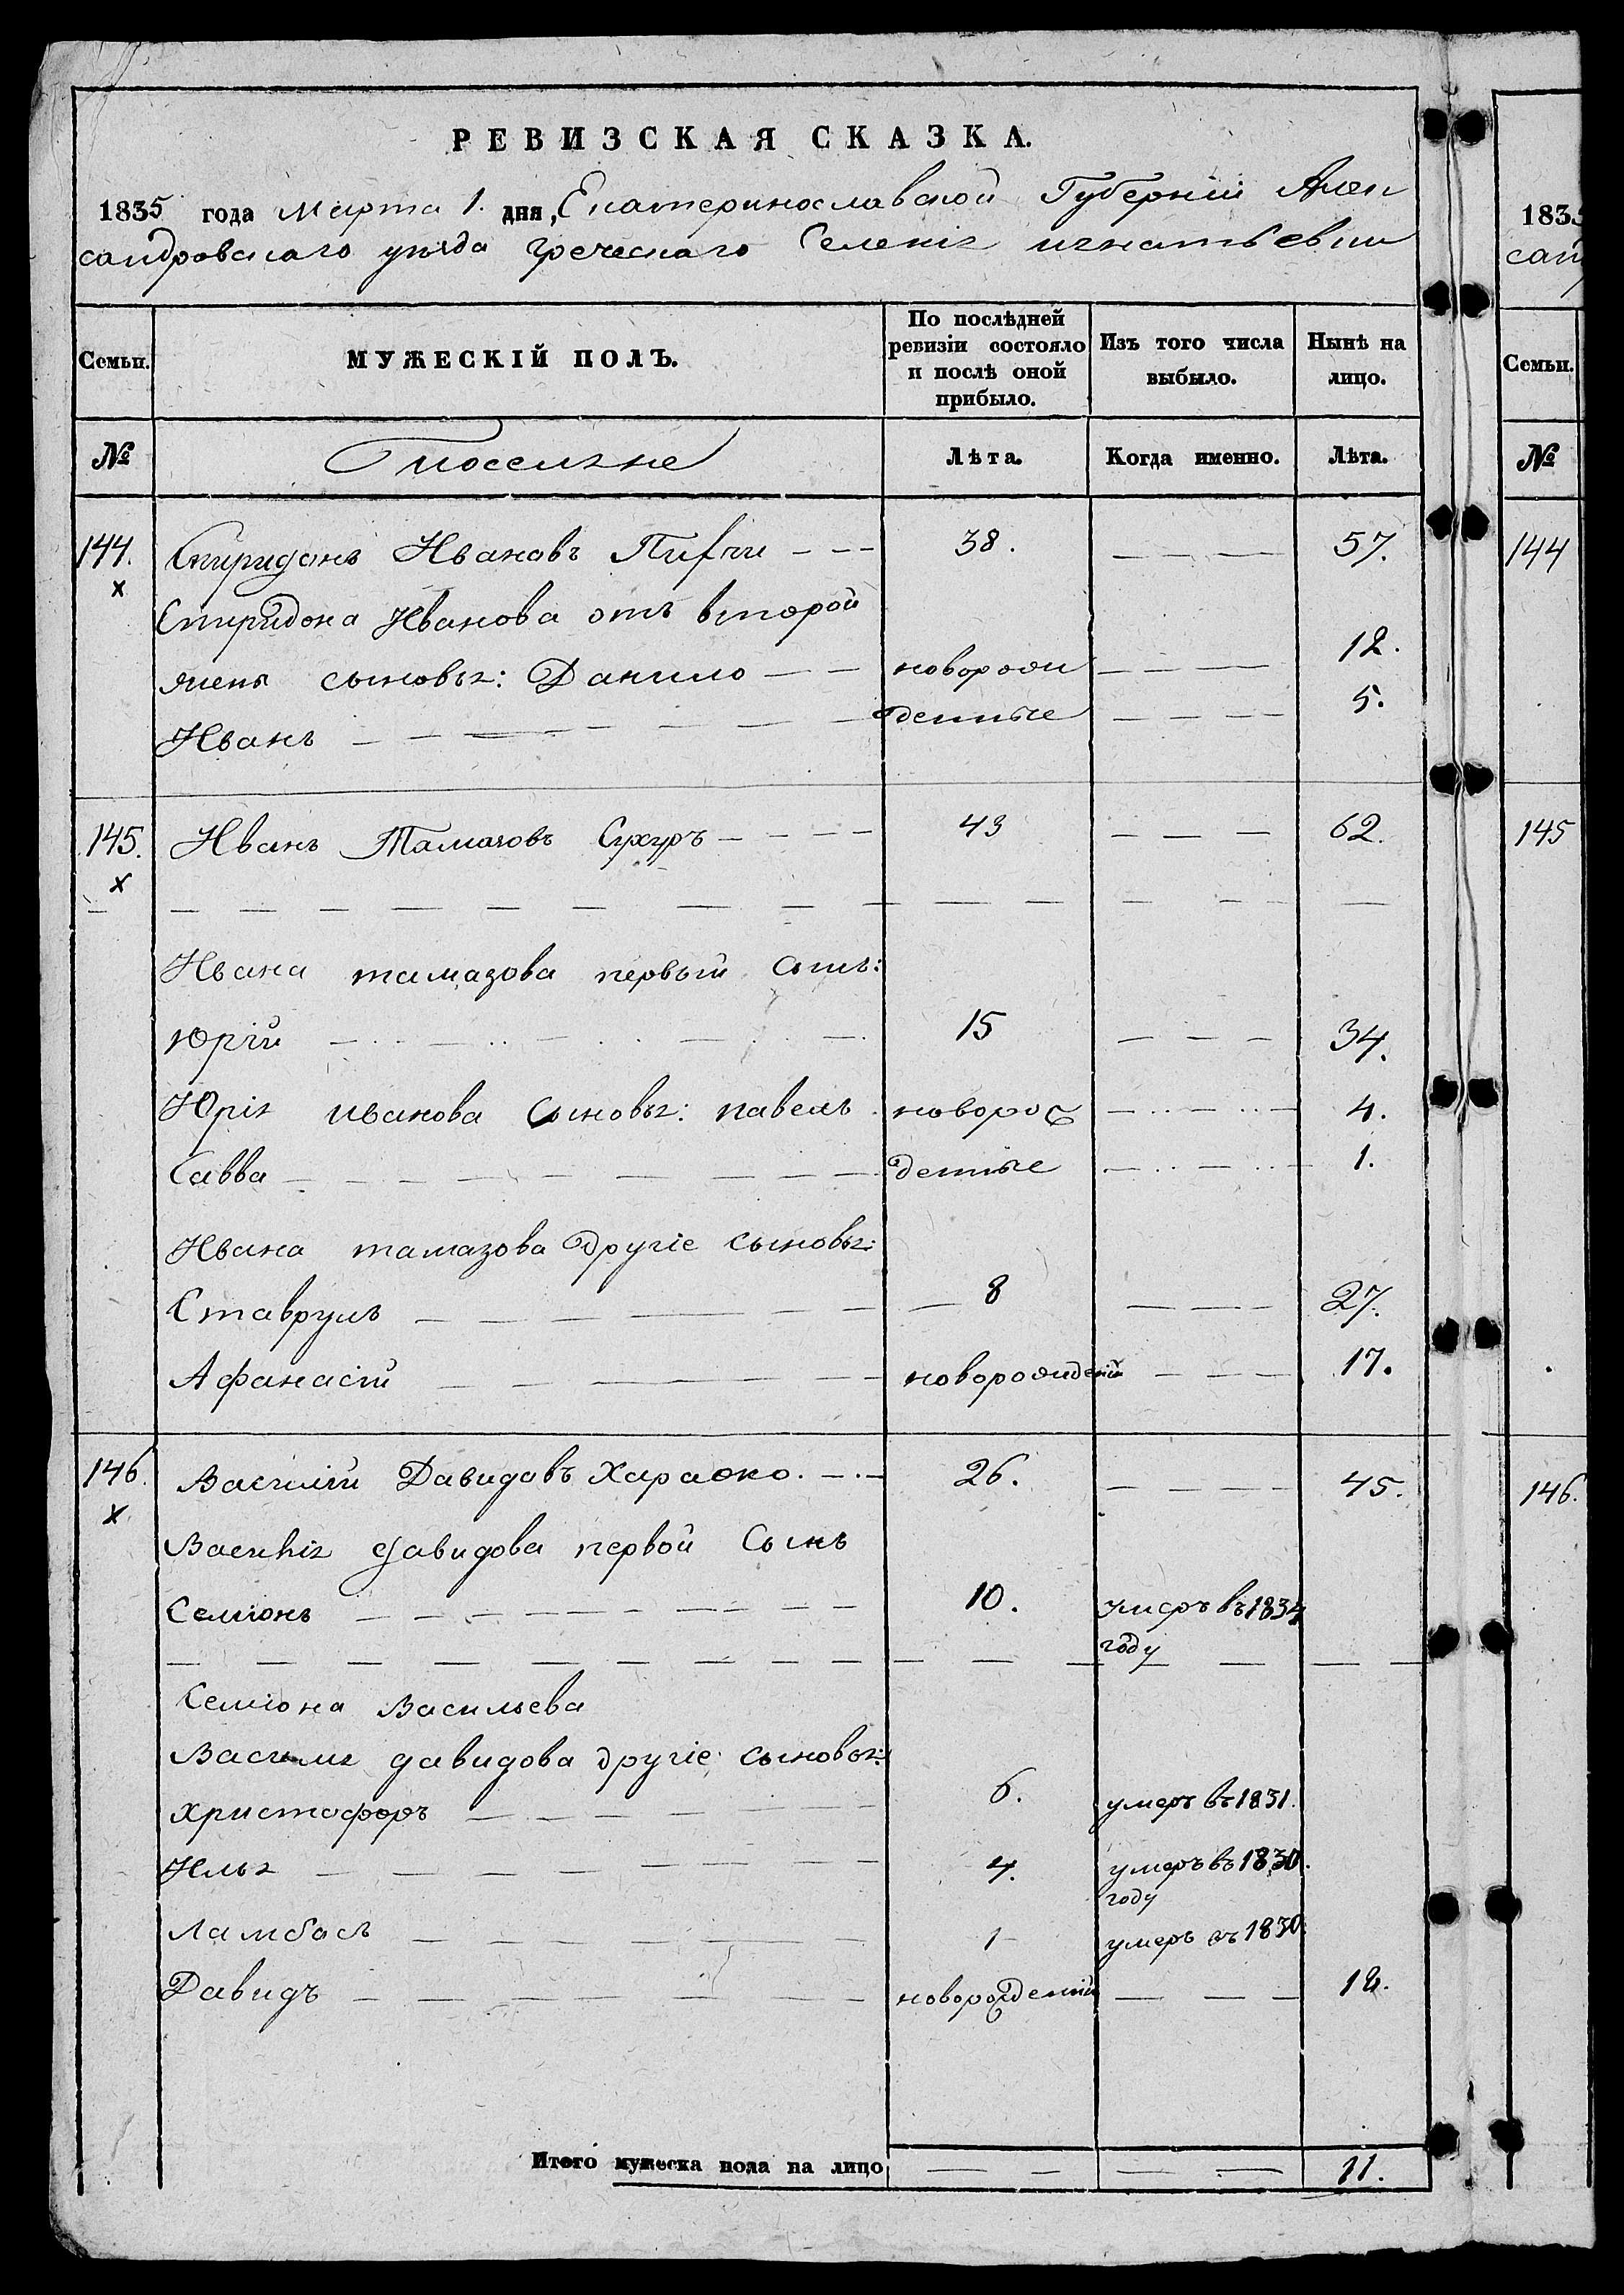 РЕВИЗСКАЯ СКАЗКА.
1835 года Марта 1. дня, Екатеринославской Губернiи Алек
сандровскаго уезда Греческаго Селенiя игнатьевки
Семьи. МУЖЕСКІЙ ПОЛЪ. По послѣдней ревизіи состояло и послѣ оной прибыло. Изъ того числа выбыло. Нынѣ на лицо.
№ Поселяне Лѣта. Когда именно. Лѣта.
144. Спиридонъ Ивановъ — — — 38. — — — 57.
х
Спиридона Иванова отъ второй
жены сыновья: Данило — — новорож — — — 12.
Иванъ — — — — — денные — — — 5.
145. Иванъ Тамазовъ — — — — 43 — — — 62.
х
Ивана тамазова первый сынъ:
Юрiй — — — — 15 — — — 34.
Юрiя иванова сыновья: павелъ новорож — — — 4.
Савва — — — — — денные — — — 1.
Ивана тамазова другiе сыновья:
Ставрулъ — — — — — — 8 — — — 27.
Афанасiй — — — — — новорожденiй — — — 17.
146. Василiй Давидовъ Хараджо. — — 26. — — — — 45.
х
Василiя давидова первой Сынъ
Семiонъ — — — — — — 10. умеръ въ 1834
году
Семiона Васильева
Василия давидова другiе сыновья:
Христофоръ — — — — — — 6. умеръ въ 1831.
Илья — — — — — — 4. умеръ въ 1830.
году
Ламбасъ — — — — — — 1 умеръ въ 1830.
Давидъ — — — — — — новорожденнiй — — — 12.
Итого мужеска пола на лицо — — — — 11.
1835
сан
Семьи.
№
144
145
146.